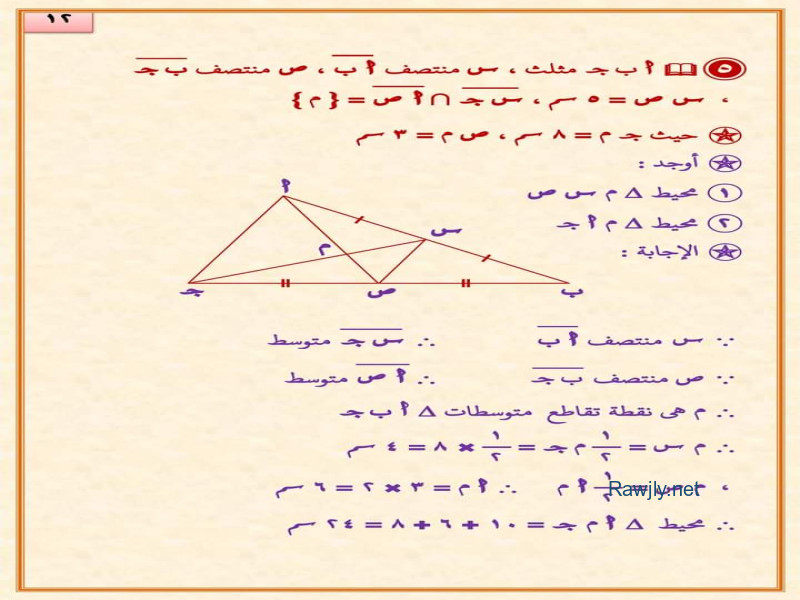 ١٢
٥ أ ب جـ مثلث ، س منتصف أ ب ، ص منتصف ب جـ
، س ص = ٥ سم ، س جـ ∩ أ ص = { م }
حيث جـ م = ٨ سم ، ص م = ٣ سم
أوجد :
١ محيط Δ م س ص
٢ محيط Δ م أ جـ
الإجابة :
أ
س
م
جـ
ص
ب
∵ س منتصف أ ب ∴ س جـ متوسط
∵ ص منتصف ب جـ ∴ أ ص متوسط
∴ م هى نقطة تقاطع متوسطات Δ أ ب جـ
∴ م س = ١/٢ م جـ = ١/٢ × ٨ = ٤ سم
، م ص = ١/٢ أ م ∴ أ م = ٣ × ٢ = ٦ سم
Rawjly.net
∴ محيط Δ أ م جـ = ١٠ + ٦ + ٨ = ٢٤ سم